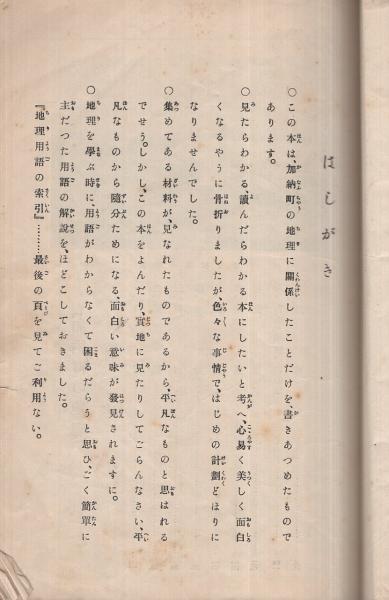 はしがき
○この本は、加納町の地理に關係したことだけを、書きあつめたもので
あります。
○見たらわかる、讀んだらわかる本にしたいと考へ、心易く美しく面白
くなるやうに骨折りましたが、色々な事情で、はじめの計劃どほりに
なりませんでした。
○集めてある材料が、見なれたものであるから、平凡なものと思はれる
でせう。しかし、この本をよんだり、實地に見たりしてごらんなさい、平
凡なものから隨分ためになる、面白い意味が發見されますに。
○地理を學ぶ時に、用語がわからなくて困るだらうと思ひ、ごく簡單に
主だつた用語の解說を、ほどこしておきました。
『地理用語の索引』………最後の頁を見てご利用ない。